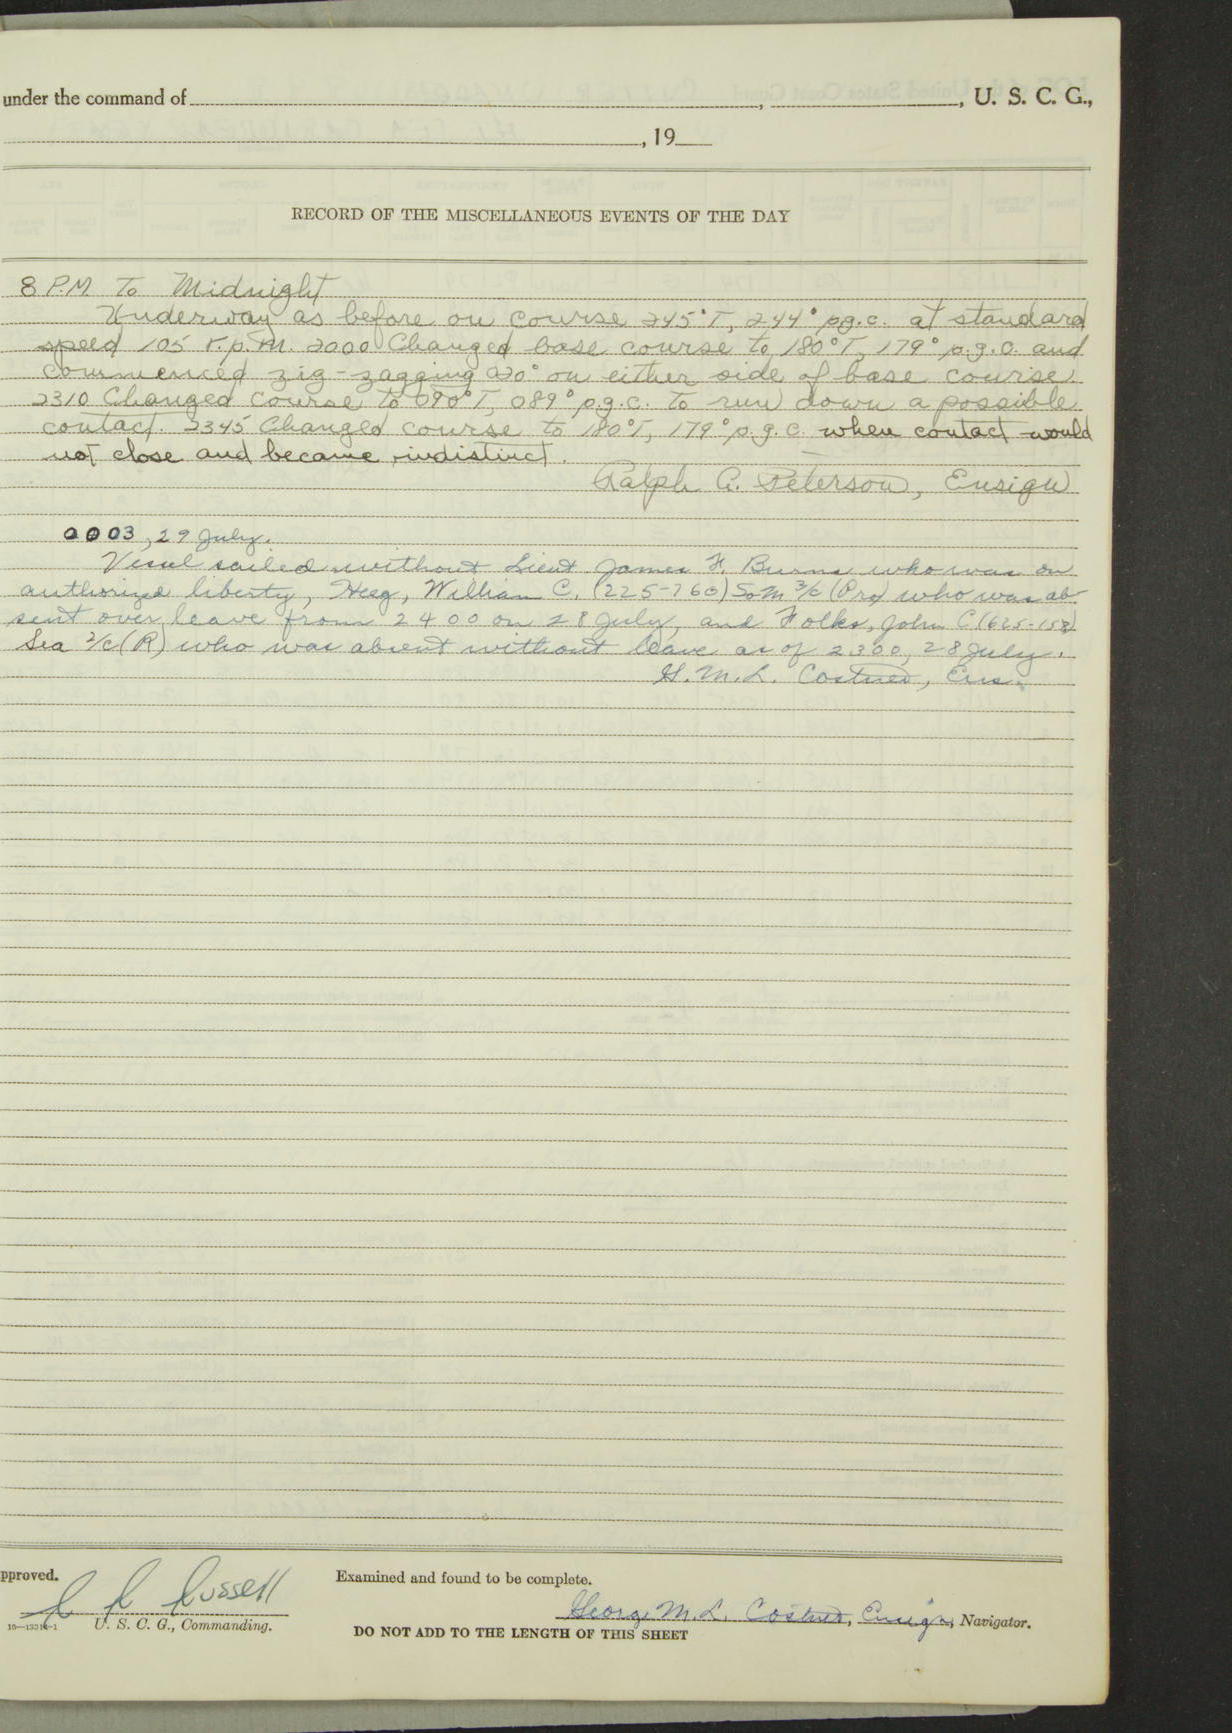 under the command of , , U. S. C. G.,
, 19
RECORD OF THE MISCELLANEOUS EVENTS OF THE DAY
8 P.M. To Midnight
Underway as before on course 245°T, 244° p.g.c. at standard
speed 105 r.p.m. 2000 Changed base course to 180°T, 179° p.g.c. and
commenced zig-zagging 20° on either side of base course.
2310 Changed course to 090°T, 089° p.g.c. to run down a possible
contact. 2345 Changed course to 180°T, 179° p.g.c. when contact would
not close and became indistinct.
Ralph G. Peterson, Ensign
0003, 29 July.
Vessel sailed without Lieut James F. Burns who was on
authorized liberty, Heeg, William C. (225-760) SoM 3/c who was ab-
sent over leave from 2400 on 28 July, and Folks, John C (625-158)
Sea 2/c (R) who was absent without leave as of 2300, 28 July.
G. M. L. Costner, Ens.
pproved.
Russell
U. S. C. G., Commanding.
Examined and found to be complete.
George M. L. Costner, Ensign, Navigator.
DO NOT ADD TO THE LENGTH OF THIS SHEET